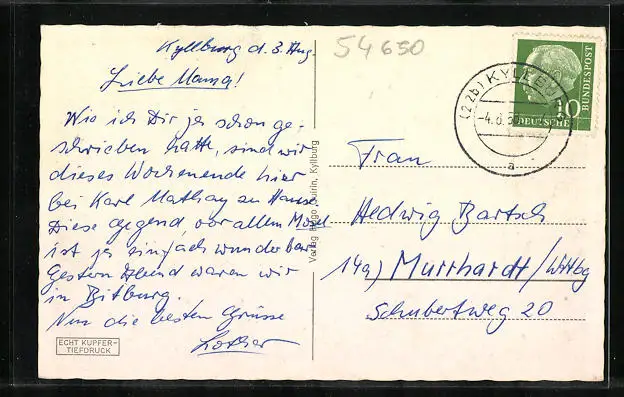 Kyllburg d. 3. Aug.
Liebe Mama!
Wie ich Dir ja schon ge-
schrieben hatte, sind wir
dieses Wochenende hier
bei Karl Mathay zu Hause.
Diese Gegend, vor allem Mosel
ist ja einfach wunderbar.
Gestern Abend waren wir
in Bitburg.
Nun die besten Grüsse
Lothar
ECHT KUPFER-
TIEFDRUCK
Verlag Hugo Quirin, Kyllburg
54650
(22b) KYLLBURG
-4.8.
a
10
DEUTSCHE
BUNDESPOST
Frau
Hedwig Bartsch
14a) Murrhardt/Wttbg
Schubertweg 20